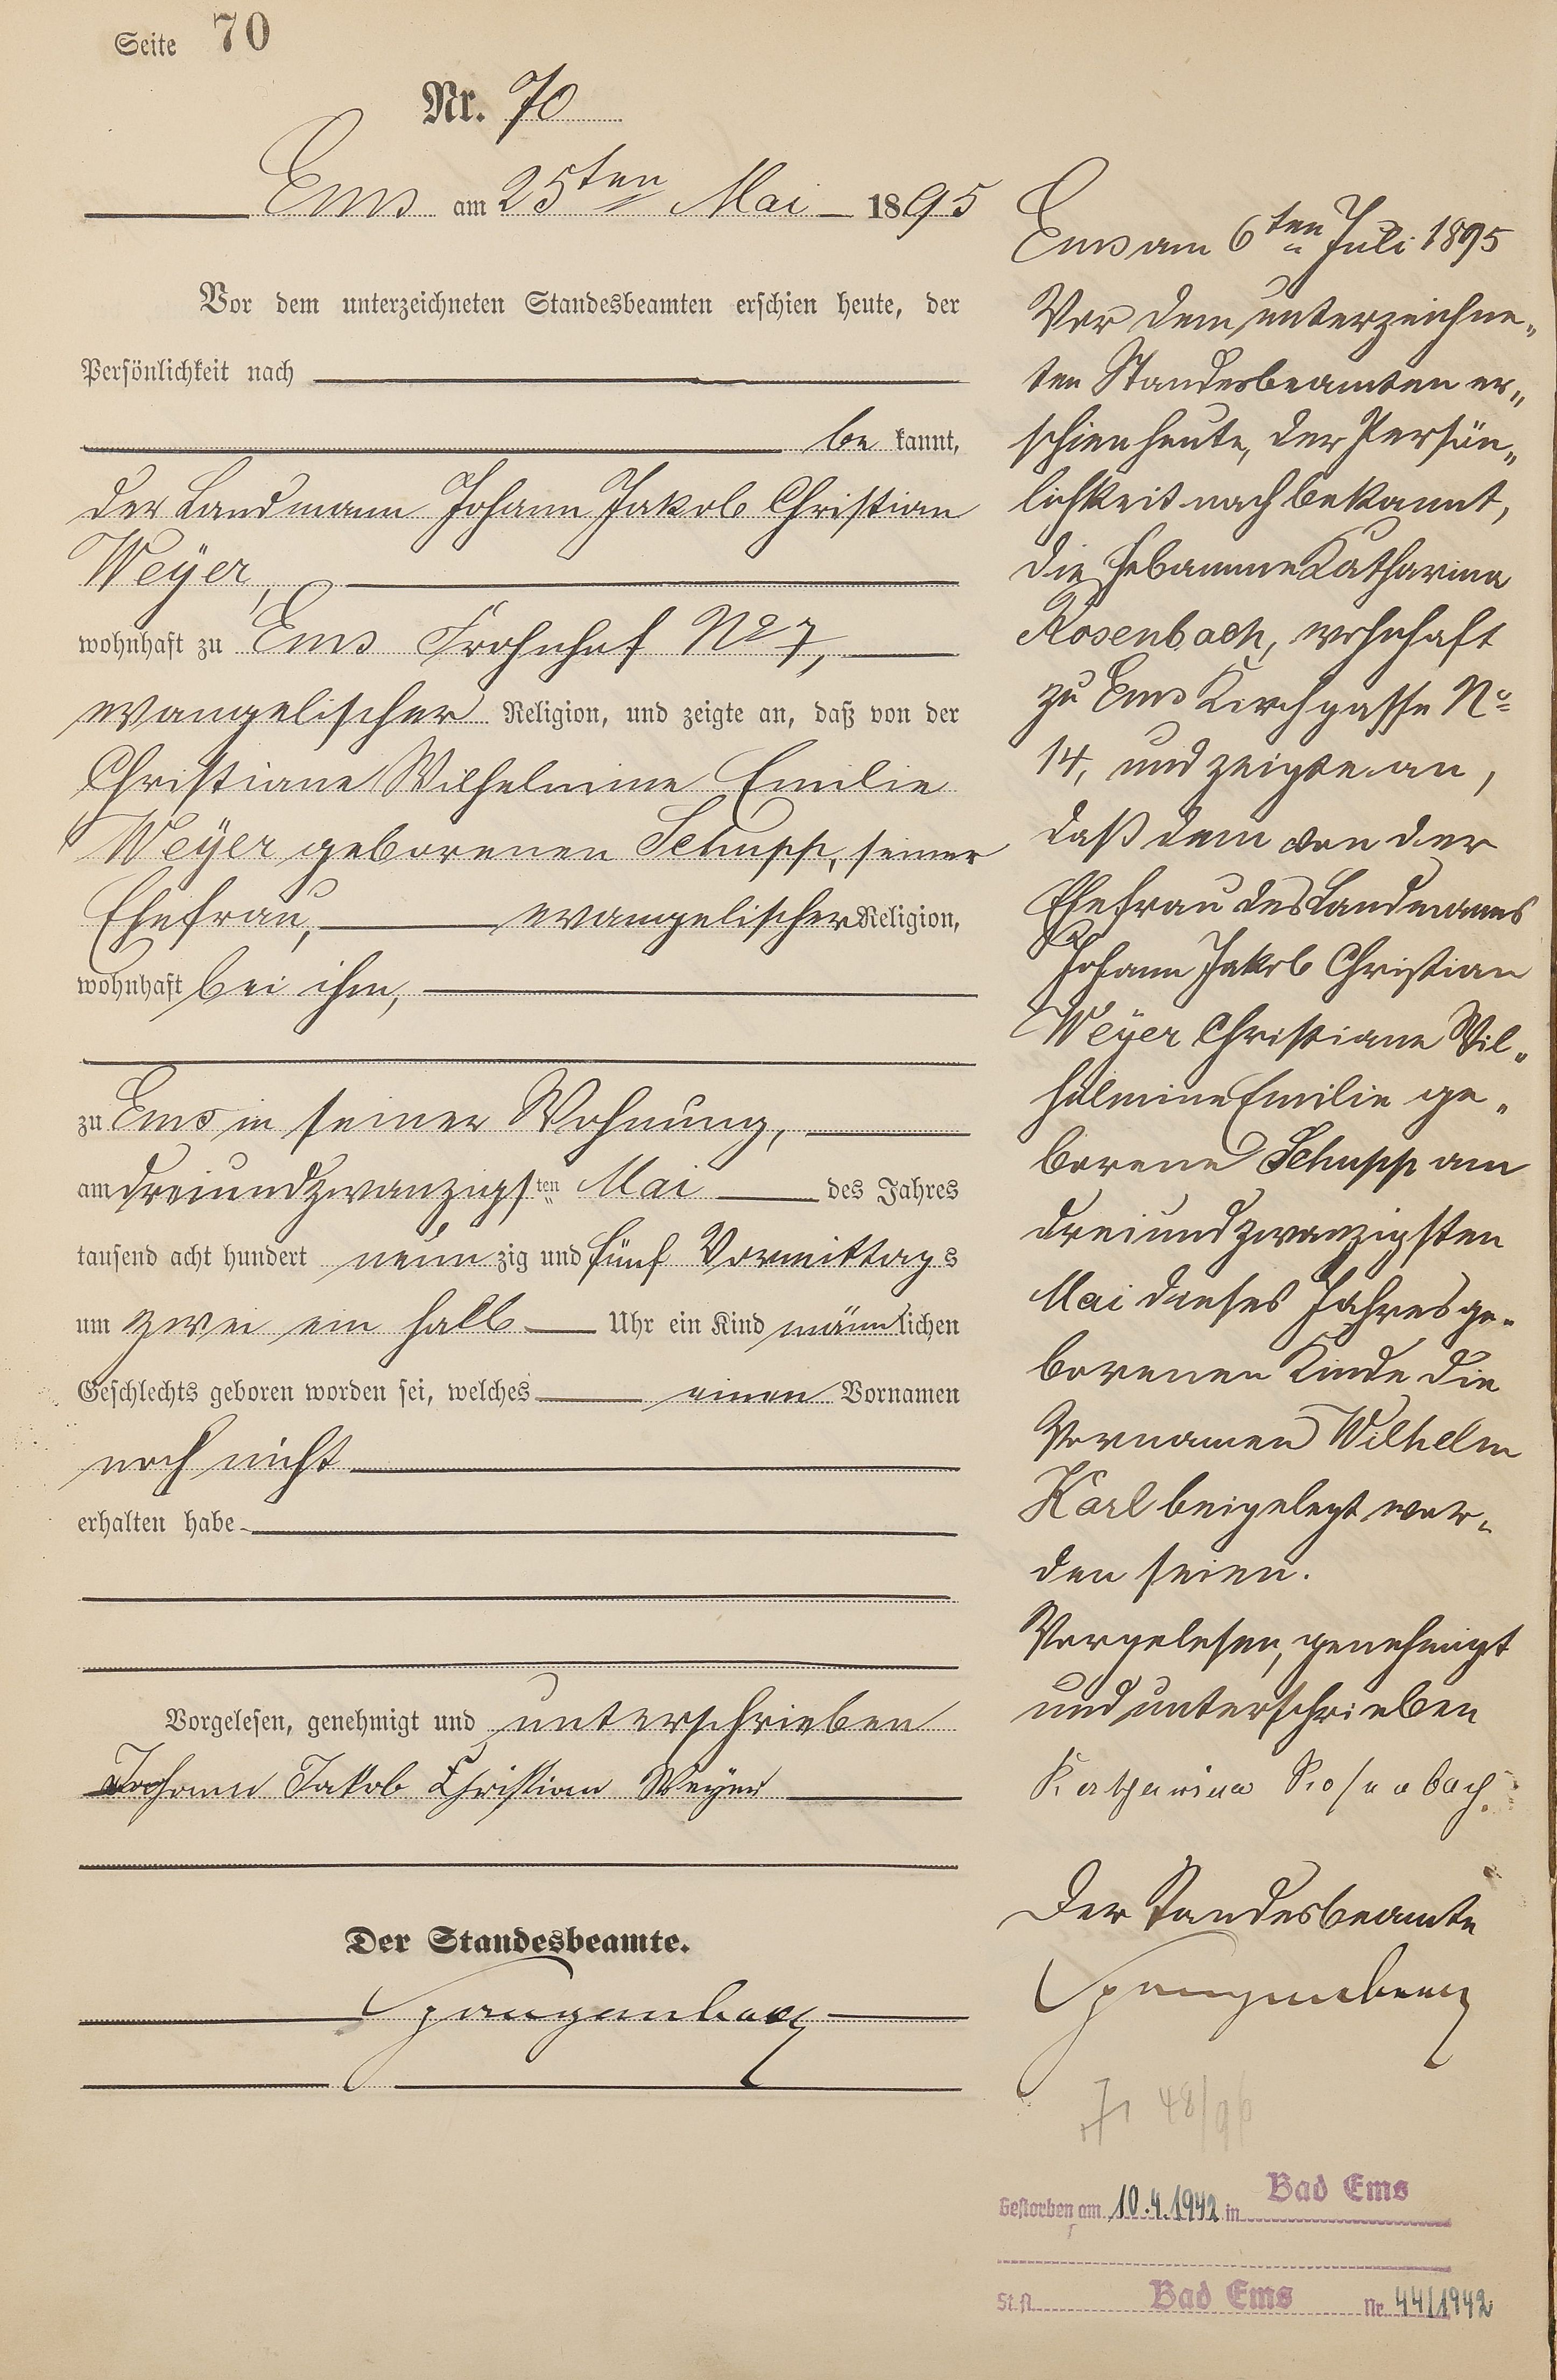 Seite 70
Nr. 70
Ems am 25ten Mai 1895
Vor dem unterzeichneten Standesbeamten erschien heute, der
Persönlichkeit nach
be kannt,
der Landmann Johann Jakob Christian
Weÿer,
wohnhaft zu Ems Frohnhof No 7,
evangelischer Religion, und zeigte an, daß von der
Christiane Wilhelmine Emilie
Weÿer geborenen Schupp, seiner
Ehefrau, evangelischer Religion,
wohnhaft bei ihm,
zu Ems in seiner Wohnung,
am dreiundzwanzigsten Mai des Jahres
tausend acht hundert neun zig und fünf Vormittags
um zwei ein halb Uhr ein Kind männlichen
Geschlechts geboren worden sei, welches einen Vornamen
noch nicht
erhalten habe
Vorgelesen, genehmigt und unterschrieben
Johann Jakob Christian Weyer
Der Standesbeamte.
Spangenberg
Ems am 6ten Juli 1895
Vor dem unterzeichne„
ten Standesbeamten er„
schien heute, der Persön„
lichkeit nach bekannt,
die Hebamme Katharina
Rosenbach, wohnhaft
zu Ems Kirchgasse No
14, und zeigte an,
daß dem von der
Ehefrau des Landmanns
Johann Jakob Christian
Weÿer Christiane Wil„
helmine Emilie ge„
borene Schupp am
dreiundzwanzigsten
Mai dieses Jahres ge„
borenen Kinde die
Vornamen Wilhelm
Karl beigelegt wor„
den seien.
Vorgelesen, genehmigt
und unterschrieben
Katharina Rosenbach.
Der Standesbeamte
Spangenberg
48/96
Gestorben am 10.4.1942 in Bad Ems
St.A. Bad Ems Nr 44/1942